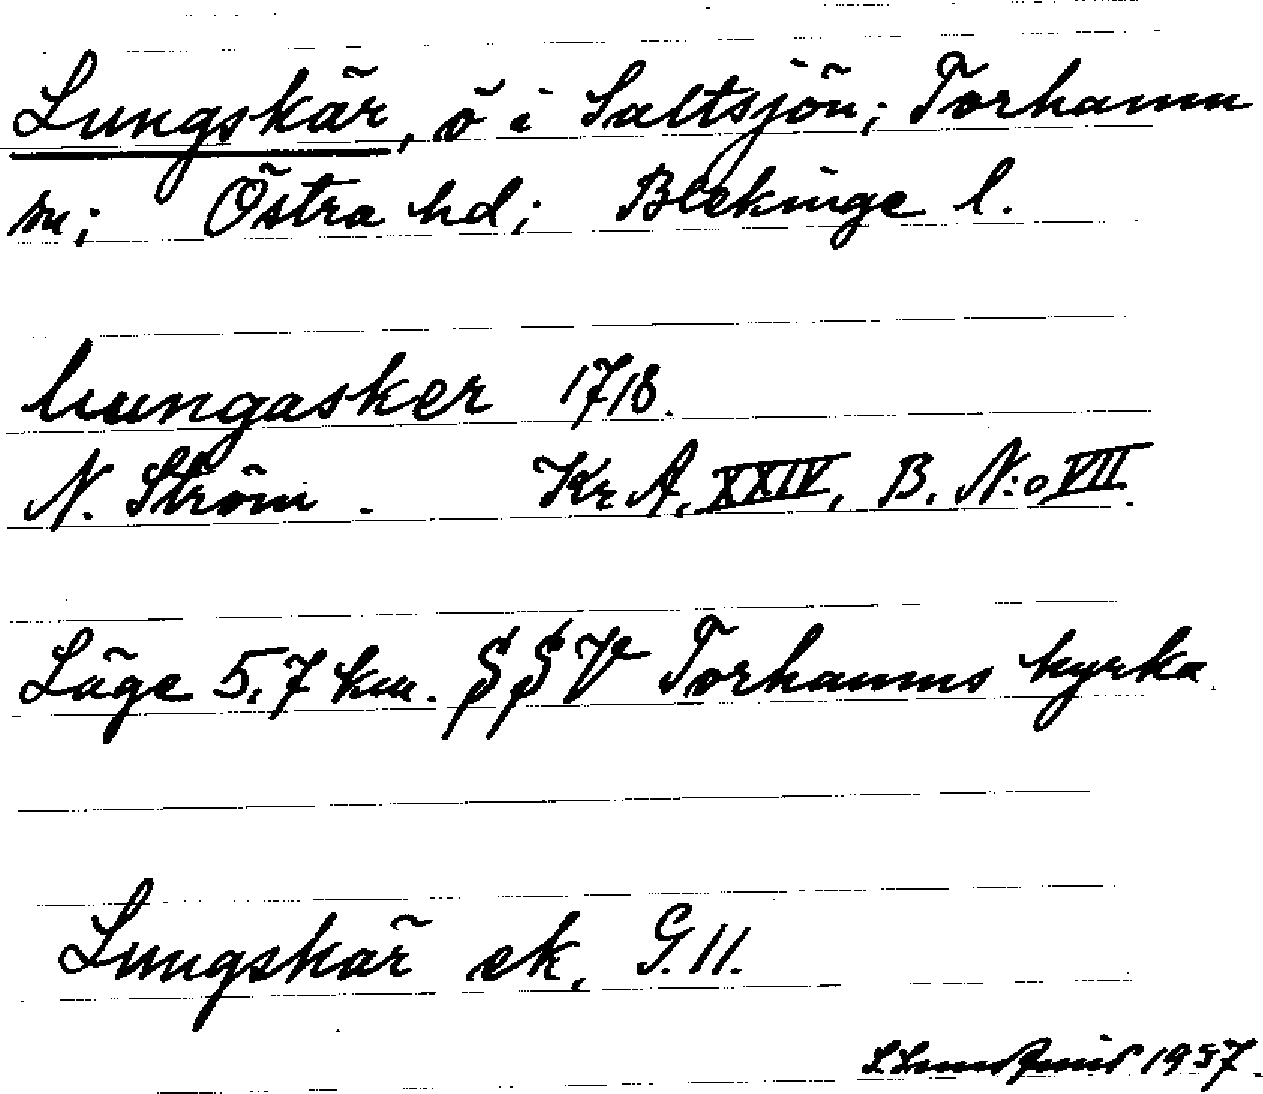 Lungskär, ö i Saltsjön; Torhamn
sn; Östra hd; Blekinge l.
Lungasker 1718.
N. Ström. Kr A, XXIV, B. N:o VII.
Läge 5,7 km. SSV Torhamns kyrka.
Lungskär ek. G.11.
1957.